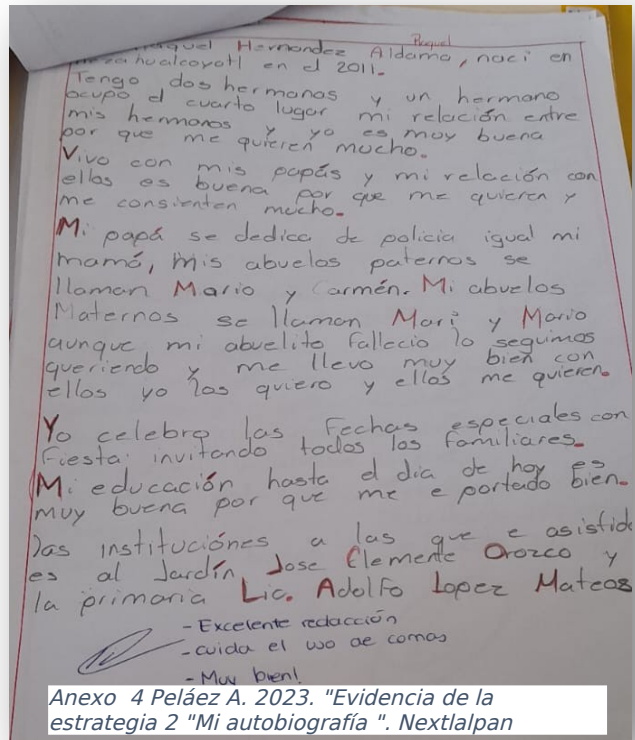 Raquel
Hernandez Aldama, naci en
en el 2011.
Tengo dos hermanas y un hermano
ocupo el cuarto lugar mi relación entre
mis hermanos y yo es muy buena
por que me quieren mucho.
Vivo con mis papás y mi relación con
ellos es buena por que me quieren y
me consienten mucho.
Mi papá se dedica de policia igual mi
mamá, mis abuelos paternos se
llaman Mario y Carmén. Mi abuelos
Maternos se llaman Mari y Mario
aunque mi abuelito fallecio lo seguimos
queriendo y me llevo muy bien con
ellos yo los quiero y ellos me quieren.
Yo celebro las Fechas especiales con
Fiesta invitando todos los familiares.
Mi educación hasta el dia de hoy es
muy buena por que me e portado bien.
las instituciónes a las que e asistid
es al Jardín Jose Clemente Orozco y
la primaria Lic. Adolfo Lopez Mateos
- Excelente redacción
- cuida el uso de comas
- Muy bien!
Anexo 4 Peláez A. 2023. "Evidencia de la
estrategia 2 "Mi autobiografía ". Nextlalpan